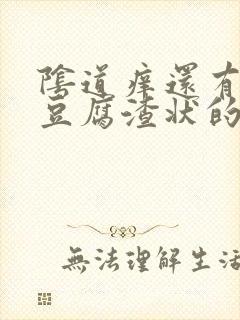 陰道癢還有
豆腐渣狀的
無法理解生活